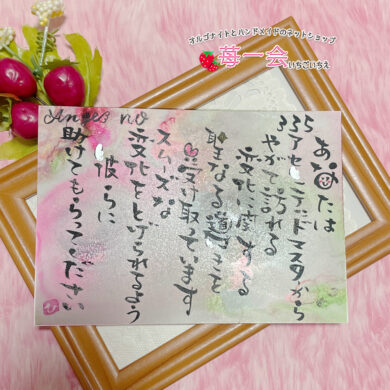 オルゴナイトとハンドメイドのネットショップ
苺一会
いちごいちえ
Anges no
335
あなたは
アセンデッドマスターから
やがて訪れる
変化に対する
聖なる導きを
受け取っています
スムーズな
変化をとげられるよう
彼らに
助けてもらってください